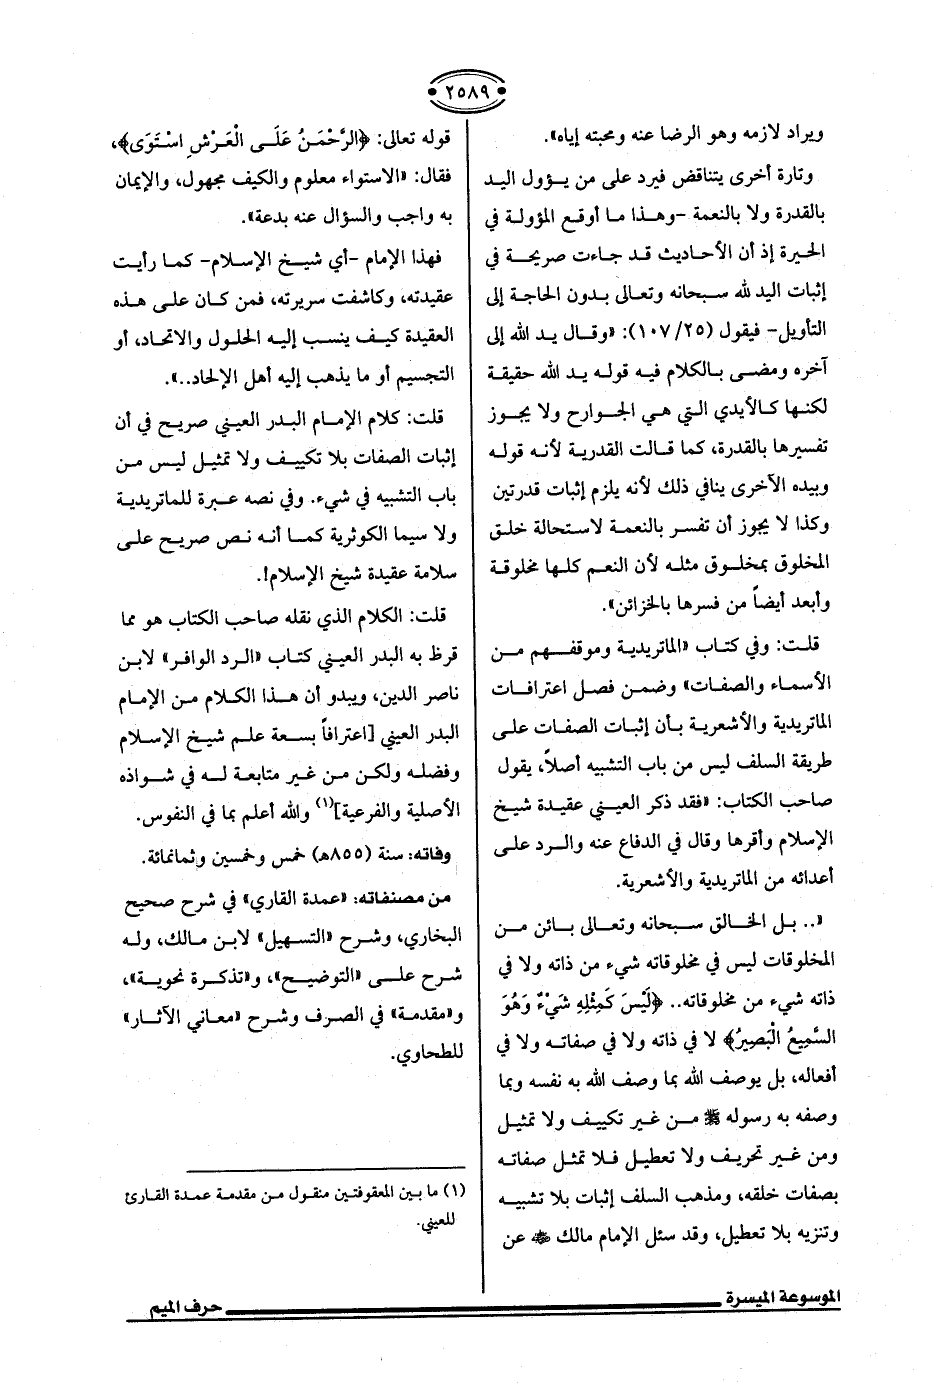 ٢٥٨٩
ويراد لازمه وهو الرضا عنه ومحبته إياه».
وتارة أخرى يتناقض فيرد على من يؤول اليد
بالقدرة ولا بالنعمة -وهذا ما أوقع المؤولة في
الحيرة إذ أن الأحاديث قد جاءت صريحة في
إثبات اليد لله سبحانه وتعالى بدون الحاجة إلى
التأويل- فيقول (٢٥/ ١٠٧): «وقال يد الله إلى
آخره ومضى بالكلام فيه قوله يد الله حقيقة
لكنها كالأيدي التي هي الجوارح ولا يجوز
تفسيرها بالقدرة، كما قالت القدرية لأنه قوله
وبيده الآخرى ينافي ذلك لأنه يلزم إثبات قدرتين
وكذا لا يجوز أن تفسر بالنعمة لاستحالة خلق
المخلوق بمخلوق مثله لأن النعم كلها مخلوقة
وأبعد أيضاً من فسرها بالخزائن».
قلت: وفي كتاب «الماتريدية وموقفهم من
الأسماء والصفات» وضمن فصل اعترافات
الماتريدية والأشعرية بأن إثبات الصفات على
طريقة السلف ليس من باب التشبيه أصلاً، يقول
صاحب الكتاب: «فقد ذكر العيني عقيدة شيخ
الإسلام وأقرها وقال في الدفاع عنه والرد على
أعدائه من الماتريدية والأشعرية.
«.. بل الخالق سبحانه وتعالى بائن من
المخلوقات ليس في مخلوقاته شيء من ذاته ولا في
ذاته شيء من مخلوقاته.. ﴿لَيْسَ كَمِثْلِهِ شَيْءٌ وَهُوَ
السَّمِيعُ الْبَصِيرُ﴾ لا في ذاته ولا في صفاته ولا في
أفعاله، بل يوصف الله بما وصف الله به نفسه وبما
وصفه به رسوله ﷺ من غير تكييف ولا تمثيل
ومن غير تحريف ولا تعطيل فلا تمثل صفاته
بصفات خلقه، ومذهب السلف إثبات بلا تشبيه
وتنزيه بلا تعطيل، وقد سئل الإمام مالك عن
قوله تعالى: ﴿الرَّحْمَنُ عَلَى الْعَرْشِ اسْتَوَى﴾،
فقال: «الاستواء معلوم والكيف مجهول، والإيمان
به واجب والسؤال عنه بدعة».
فهذا الإمام -أي شيخ الإسلام- كما رأيت
عقيدته، وكاشفت سريرته، فمن كان على هذه
العقيدة كيف ينسب إليه الحلول والاتحاد، أو
التجسيم أو ما يذهب إليه أهل الإلحاد..».
قلت: كلام الإمام البدر العيني صريح في أن
إثبات الصفات بلا تكييف ولا تمثيل ليس من
باب التشبيه في شيء. وفي نصه عبرة للماتريدية
ولا سيما الكوثرية كما أنه نص صريح على
سلامة عقيدة شيخ الإسلام!.
قلت: الكلام الذي نقله صاحب الكتاب هو مما
قرظ به البدر العيني كتاب «الرد الوافر» لابن
ناصر الدين، ويبدو أن هذا الكلام من الإمام
البدر العيني [اعترافاً بسعة علم شيخ الإسلام
وفضله ولكن من غير متابعة له في شواذه
الأصلية والفرعية](١) والله أعلم بما في النفوس.
وفاته: سنة (٨٥٥هـ) خمس وخمسين وثمانمائة.
من مصنفاته: «عمدة القاري» في شرح صحيح
البخاري، وشرح «التسهيل» لابن مالك، وله
شرح على «التوضيح»، و«تذكرة نحوية»،
و«مقدمة» في الصرف وشرح «معاني الآثار»
للطحاوي.
(١) ما بين المعقوفتين منقول من مقدمة عمدة القارئ
للعيني.
الموسوعة الميسرة
حرف الميم